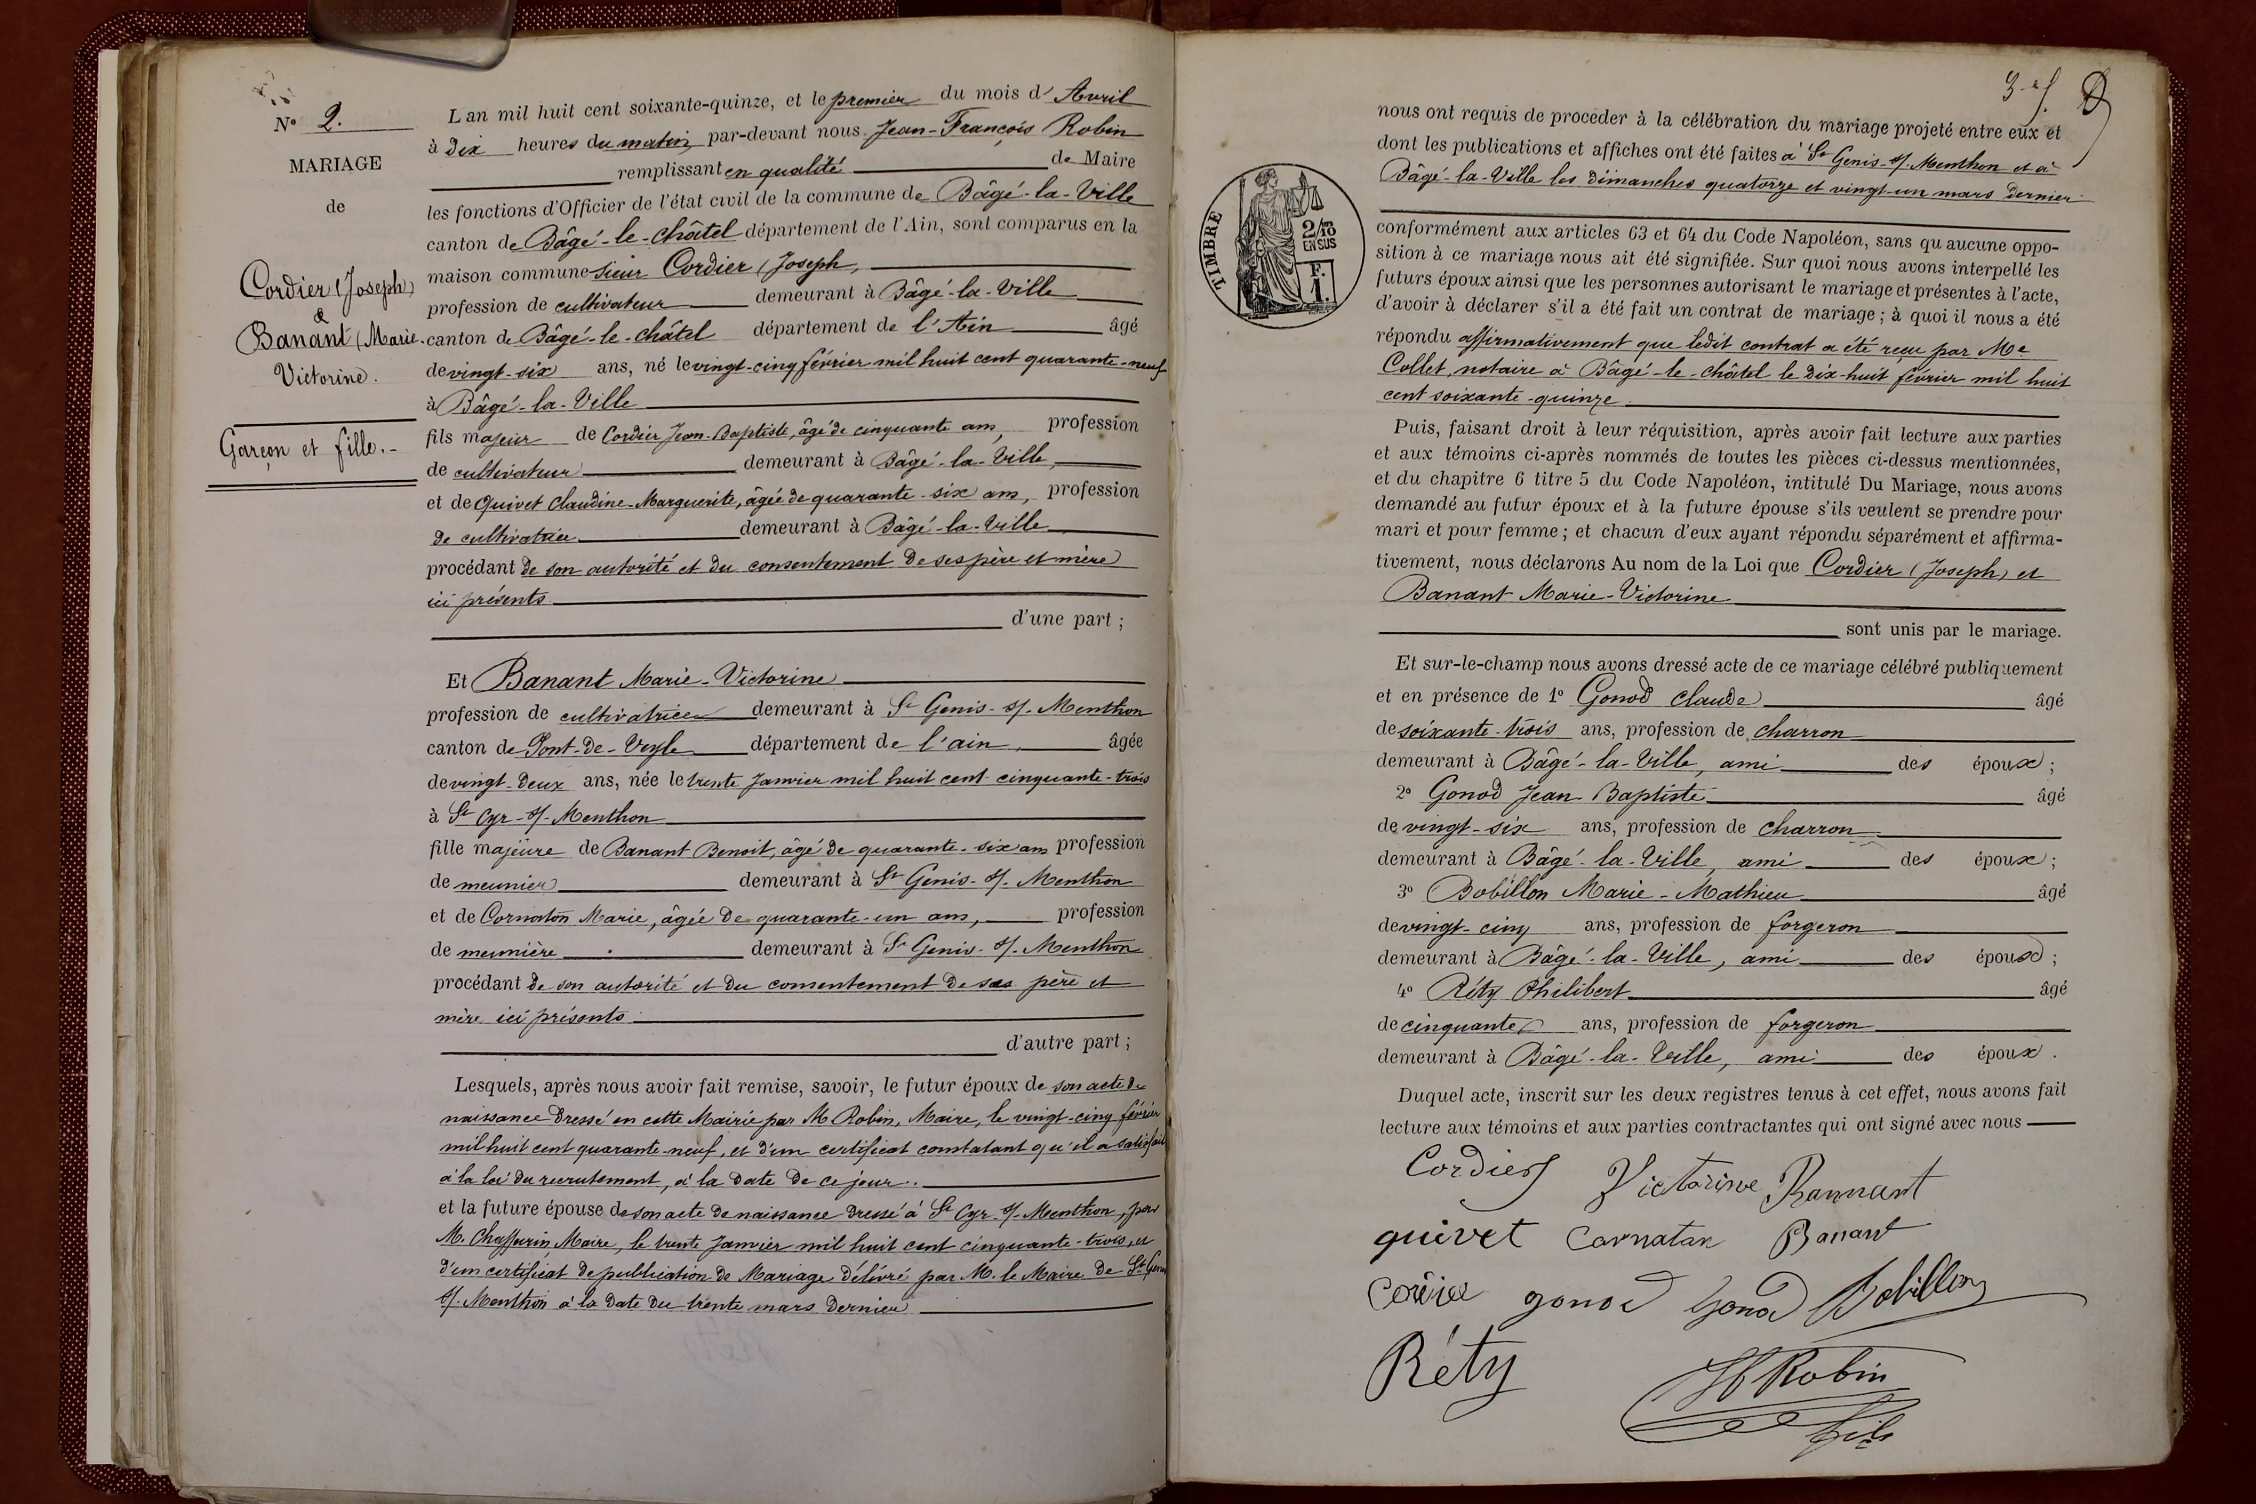 N° 2.
MARIAGE
de
Cordier (Joseph)
&
Banant (Marie-
Victorine.
Garçon et fille.-
L'an mil huit cent soixante-quinze, et le premier du mois d'Avril
à dix heures du matin par-devant nous Jean-François Robin
remplissant en qualité de Maire
les fonctions d'Officier de l'état civil de la commune de Bâgé-la-Ville
canton de Bâgé-le-châtel département de l'Ain, sont comparus en la
maison commune sieur Cordier (Joseph,
profession de cultivateur demeurant à Bâgé-la-Ville
canton de Bâgé-le-châtel département de l'Ain âgé
de vingt-six ans, né le vingt-cinq février mil huit cent quarante-neuf
à Bâgé-la-Ville
fils majeur de Cordier Jean-Baptiste, âgé de cinquante ans, profession
de cultivateur demeurant à Bâgé-la-Ville,
et de Quivet Claudine-Marguerite, âgée de quarante-six ans, profession
de cultivatrice demeurant à Bâgé-la-Ville
procédant de son autorité et du consentement de ses père et mère
ici présents
d'une part ;
Et Banant Marie-Victorine
profession de cultivatrice demeurant à St Genis-s/-Menthon
canton de Pont-de-Veyle département de l'ain âgée
de vingt-deux ans, née le trente Janvier mil huit cent cinquante-trois
à St Cyr-s/-Menthon
fille majeure de Banant Benoit, âgé de quarante-six ans profession
de meunier demeurant à St Genis-s/-Menthon
et de Cornaton Marie, âgée de quarante-un ans, profession
de meunière demeurant à St Genis-s/-Menthon
procédant de son autorité et du consentement de ses père et
mère ici présents
d'autre part ;
Lesquels, après nous avoir fait remise, savoir, le futur époux de son acte de
naissance dressé en cette Mairie par M. Robin, Maire, le vingt-cinq février
mil huit cent quarante-neuf, et d'un certificat constatant qu'il a satisfait
à la loi du recrutement, à la date de ce jour.
et la future épouse de son acte de naissance dressé à St Cyr-s/-Menthon, par
M. Maire, le trente Janvier mil huit cent cinquante-trois, et
d'un certificat de publication de Mariage délivré par M. le Maire de St Genis
s/-Menthon à la date du trente mars dernier
nous ont requis de procéder à la célébration du mariage projeté entre eux et
dont les publications et affiches ont été faites à St Genis-s/-Menthon et à
Bâgé-la-Ville les dimanches quatorze et vingt-un mars dernier.
TIMBRE
2/10
EN SUS
F.
1.
conformément aux articles 63 et 64 du Code Napoléon, sans qu'aucune oppo-
sition à ce mariage nous ait été signifiée. Sur quoi nous avons interpellé les
futurs époux ainsi que les personnes autorisant le mariage et présentes à l'acte,
d'avoir à déclarer s'il a été fait un contrat de mariage ; à quoi il nous a été
répondu affirmativement que ledit contrat a été reçu par Me
Collet, notaire à Bâgé-le-châtel le dix-huit février mil huit
cent soixante-quinze
Puis, faisant droit à leur réquisition, après avoir fait lecture aux parties
et aux témoins ci-après nommés de toutes les pièces ci-dessus mentionnées,
et du chapitre 6 titre 5 du Code Napoléon, intitulé Du Mariage, nous avons
demandé au futur époux et à la future épouse s'ils veulent se prendre pour
mari et pour femme ; et chacun d'eux ayant répondu séparément et affirma-
tivement, nous déclarons Au nom de la Loi que Cordier (Joseph) et
Banant Marie-Victorine
sont unis par le mariage.
Et sur-le-champ nous avons dressé acte de ce mariage célébré publiquement
et en présence de 1° Gonod claude âgé
de soixante-trois ans, profession de charron
demeurant à Bâgé-la-Ville, ami des époux ;
2° Gonod Jean Baptiste âgé
de vingt-six ans, profession de charron
demeurant à Bâgé-la-Ville, ami des époux ;
3° Bobillon Marie-Mathieu âgé
de vingt-cinq ans, profession de forgeron
demeurant à Bâgé-la-Ville, ami des époux ;
4° Réty Philibert âgé
de cinquante ans, profession de forgeron
demeurant à Bâgé-la-Ville, ami des époux.
Duquel acte, inscrit sur les deux registres tenus à cet effet, nous avons fait
lecture aux témoins et aux parties contractantes qui ont signé avec nous
Cordier Victorine Bannant
quivet Cornaton Banant
gonod Gonod Bobillon
Réty Robin
fils